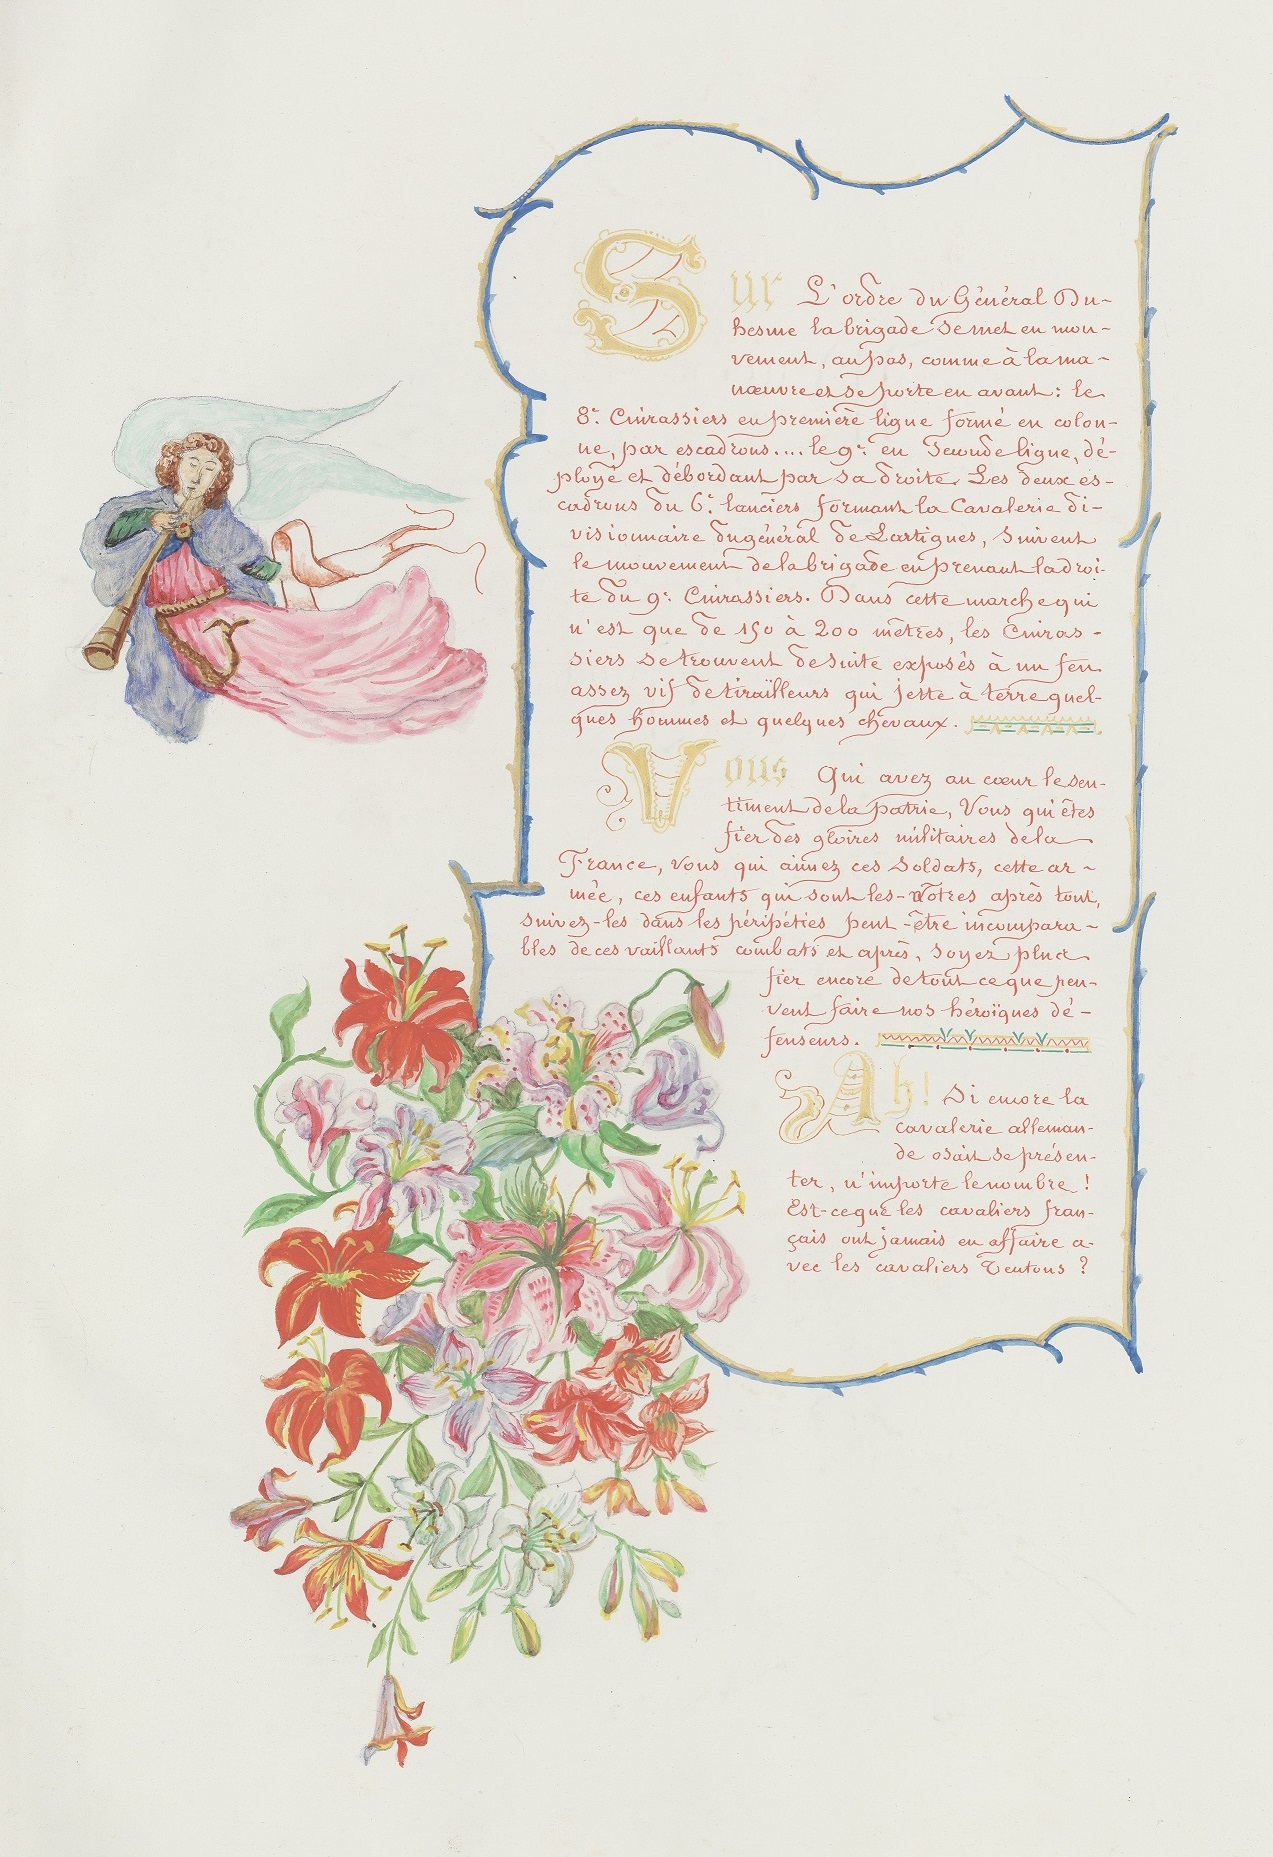 Sur L'ordre du Général Du-
hesme la brigade se met en mou-
vement, au pas, comme à la ma-
nœuvre et se porte en avant : le
8e Cuirassiers en première ligne formé en colon-
ne, par escadrons.... le 9e en Seconde ligne, dé-
ployé et débordant par sa droite. Les deux es-
cadrons du 6e lanciers formant la Cavalerie di-
visionnaire du général de Lartigues, Suivent
le mouvement de la brigade en prenant la droi-
te du 9e Cuirassiers. Dans cette marche qui
n'est que de 150 à 200 mètres, les Cuiras-
siers se trouvent de suite exposés à un feu
assez vif de tiraïlleurs qui jette à terre quel-
ques hommes et quelques chevaux.
Vous Qui avez au cœur le sen-
timent de la patrie, Vous qui êtes
fier des gloires militaires de la
France, vous qui aimez ces Soldats, cette ar-
mée, ces enfants qui sont les-vôtres après tout,
suivez-les dans les péripéties peut-être incompara-
bles de ces vaillants combats et après, Soyez plus
fier encore de tout ce que peu-
vent faire nos héroïques dé-
fenseurs.
Ah! Si encore la
cavalerie alleman-
de osait se présen-
ter, n'importe le nombre !
Est-ce que les cavaliers fran-
çais ont jamais eu affaire a-
vec les cavaliers Teutons ?